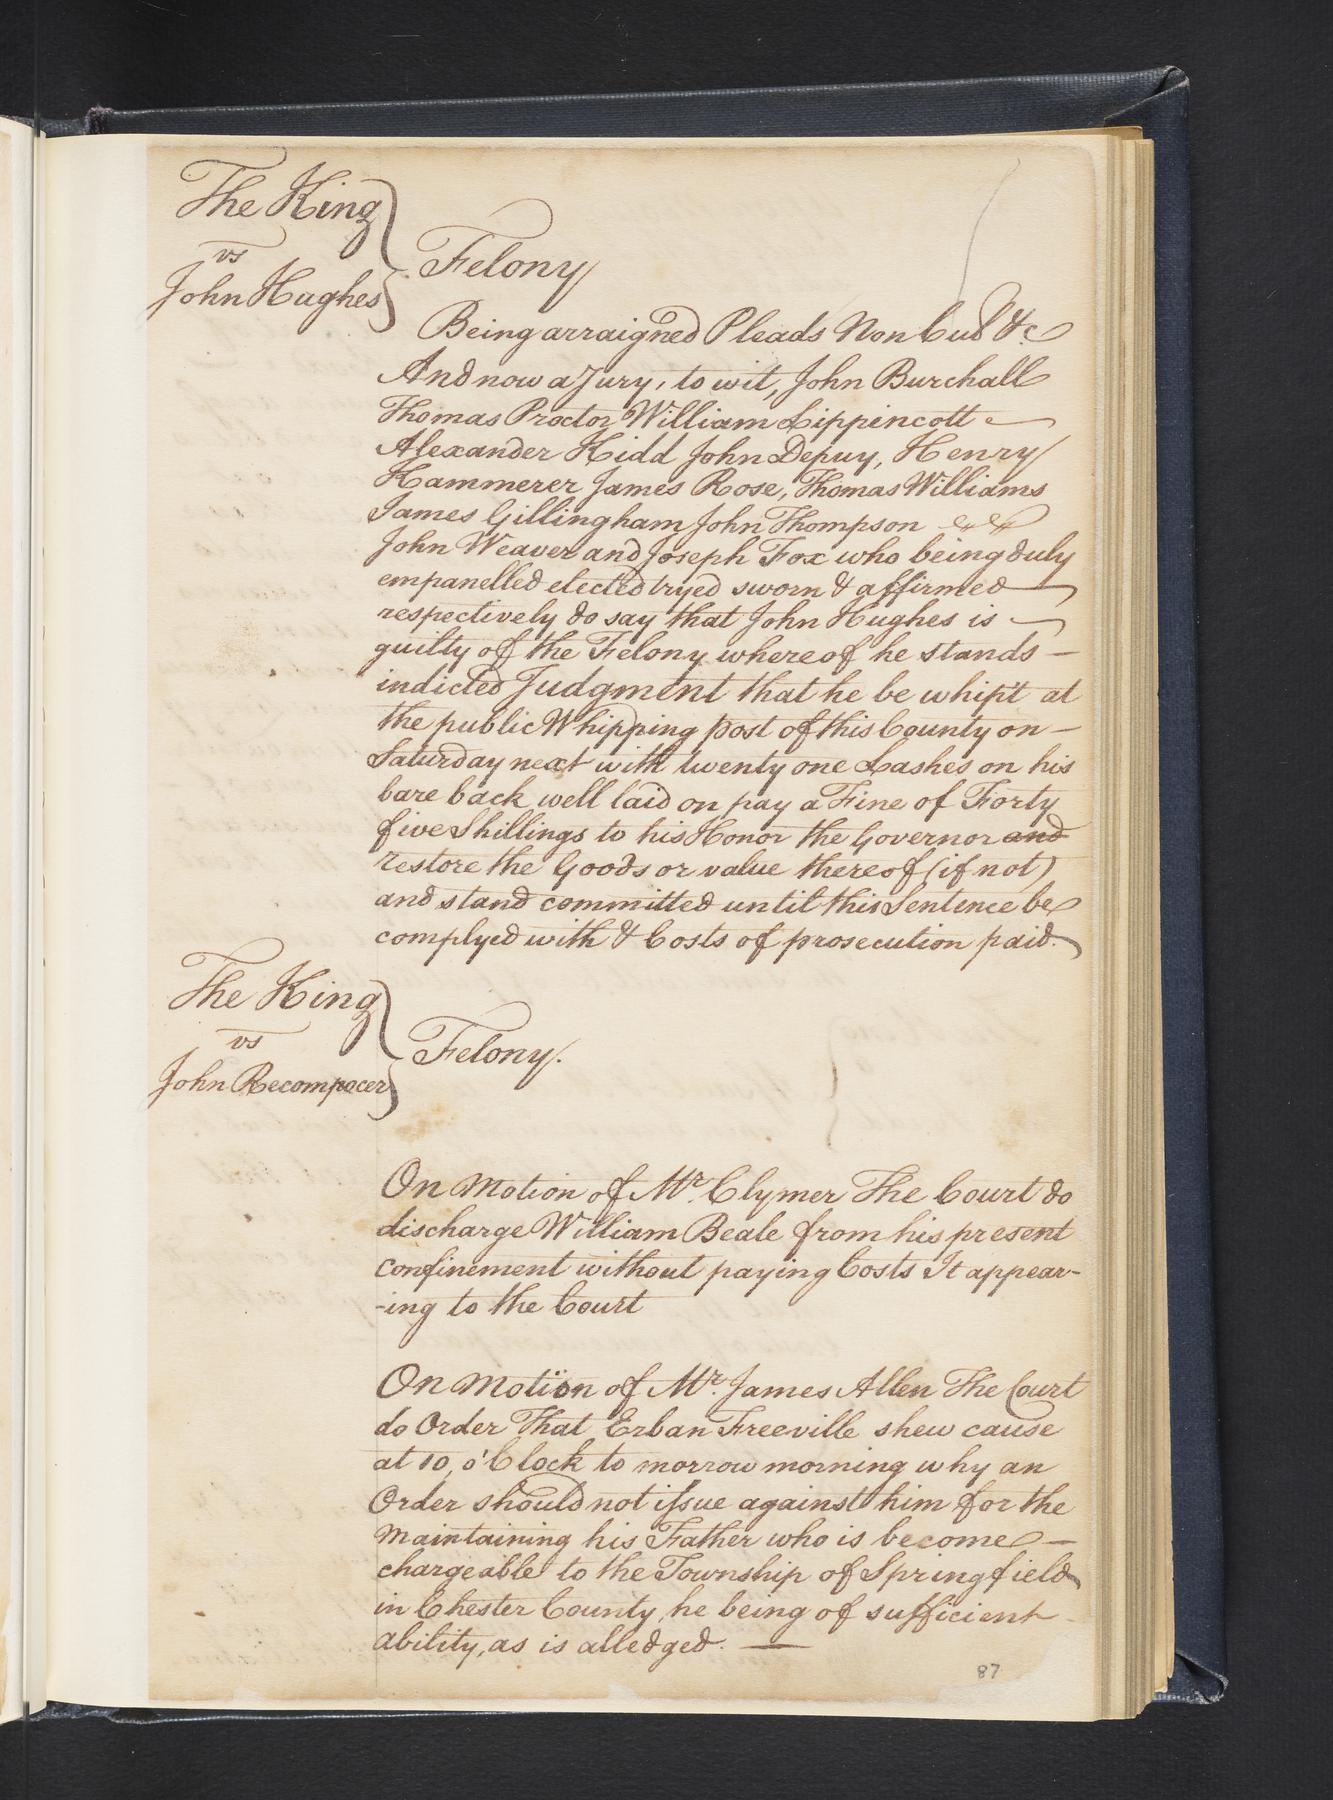 The King
vs
John Hughes
Felony
Being arraigned Pleads Non Cul &c
And now a Jury, to wit, John Burchall
Thomas Proctor William Lippincott
Alexander Kidd John Depuy, Henry
Kammerer James Rose, Thomas Williams
James Gillingham John Thompson
John Weaver and Joseph Fox who being duly
empanelled elected tryed sworn & affirmed
respectively do say that John Hughes is
guilty of the Felony whereof he stands
indicted Judgment that he be whipt at
the public Whipping post of this County on
Saturday next with twenty one Lashes on his
bare back well laid on pay a Fine of Forty
five Shillings to his Honor the Governor and
restore the Goods or value thereof (if not)
and stand committed until this Sentence be
complyed with & Costs of prosecution paid.
The King
vs
John Recompacer
Felony.
On Motion of Mr. Clymer The Court do
discharge William Beale from his present
confinement without paying Costs It appear-
-ing to the Court
On Motion of Mr. James Allen The Court
do Order That Erban Freeville shew cause
at 10, o'Clock to morrow morning why an
Order should not issue against him for the
Maintaining his Father who is become
chargeable to the Township of Springfield
in Chester County he being of sufficient
ability, as is alledged.
87